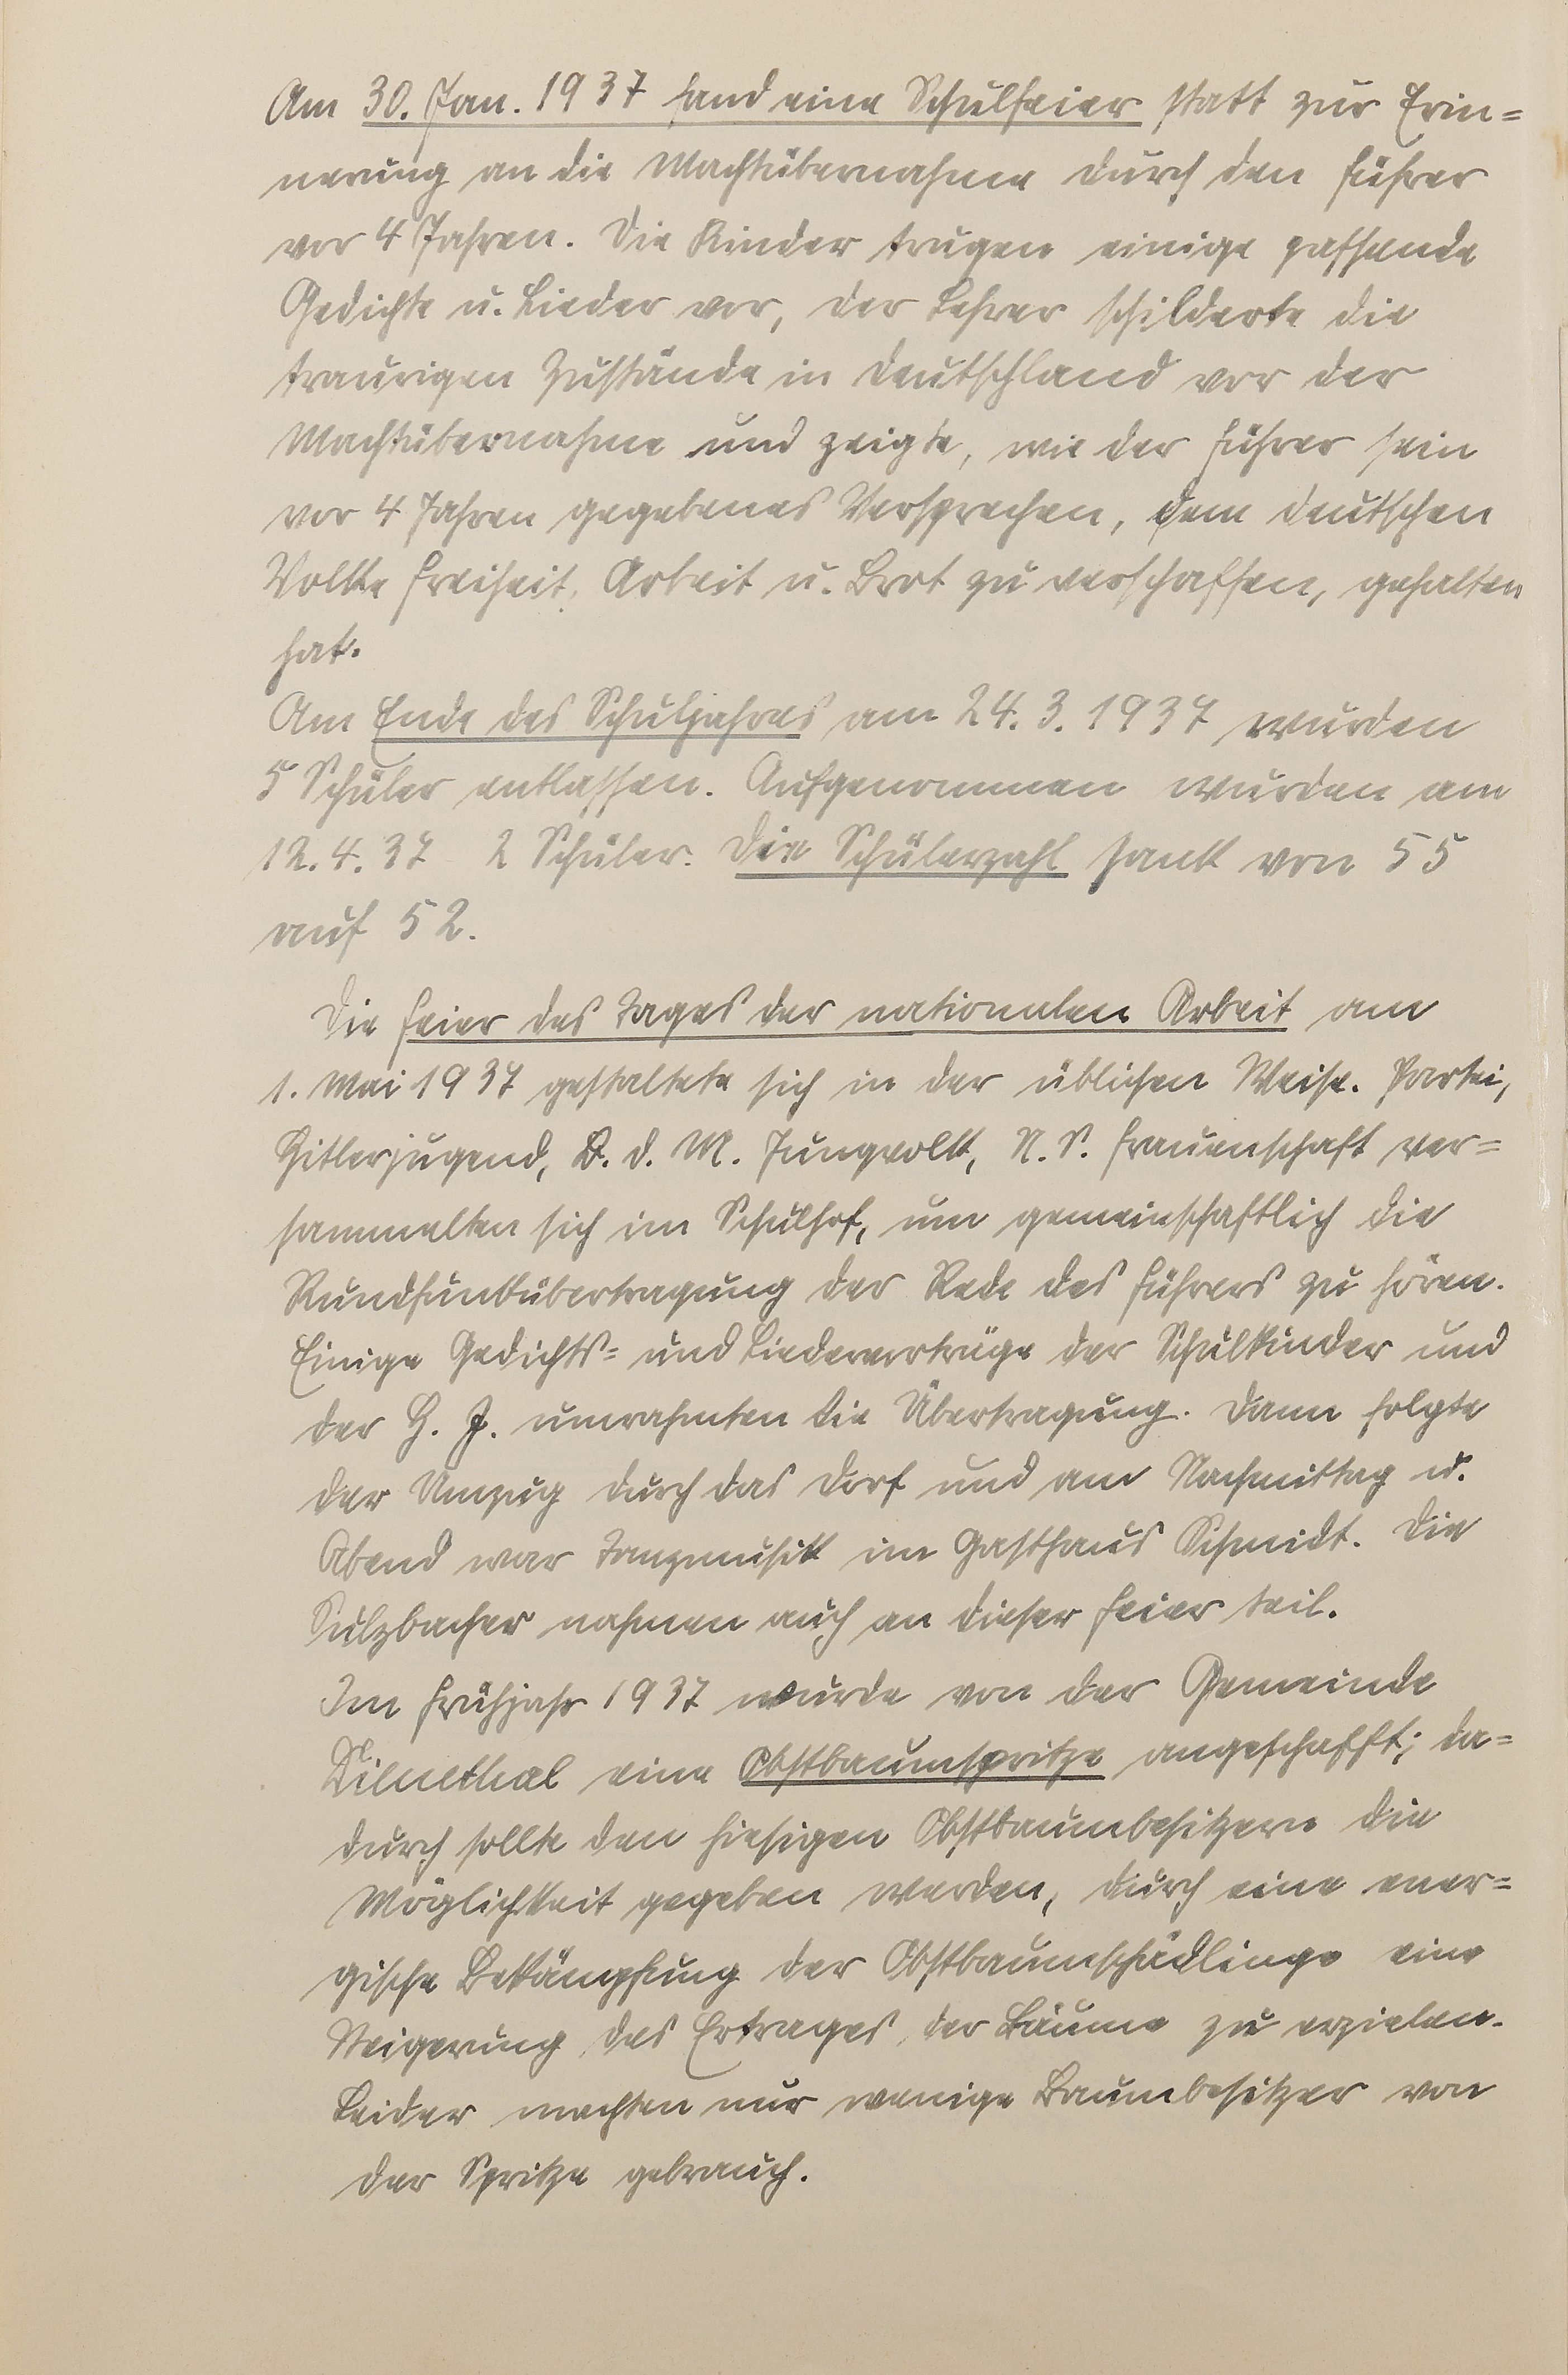 Am 30. Jan. 1937 fand eine Schulfeier statt zur Erin=
nerung an die Machtübernahme durch den Führer
vor 4 Jahren. Die Kinder trugen einige passende
Gedichte u. Lieder vor, der Lehrer schilderte die
traurigen Zustände in Deutschland vor der
Machtübernahme und zeigte, wie der Führer sein
vor 4 Jahren gegebenes Versprechen, dem deutschen
Volke Freiheit, Arbeit u. Brot zu verschaffen, gehalten
hat.
Am Ende des Schuljahres am 24. 3. 1937 wurden
5 Schüler entlassen. Aufgenommen wurden am
12. 4. 37 2 Schüler. Die Schülerzahl sank von 55
auf 52.
Die Feier des Tages der nationalen Arbeit am
1. Mai 1937 gestaltete sich in der üblichen Weise. Partei,
Hitlerjugend, B. d. M. Jungvolk, N. S. Frauenschaft ver=
sammelten sich im Schulhof, um gemeinschaftlich die
Rundfunkübertragung der Rede des Führers zu hören.
Einige Gedichts= und Liedervorträge der Schulkinder und
der H. J. umrahmten die Übertragung. Dann folgte
der Umzug durch das Dorf und am Nachmittag u.
Abend war Tanzmusik im Gasthaus Schmidt. Die
Sulzbacher nahmen auch an dieser Feier teil.
Im Frühjahr 1937 wurde von der Gemeinde
eine Obstbaumspritze angeschafft; da=
durch sollte den hiesigen Obstbaumbesitzern die
Möglichkeit gegeben werden, durch eine ener=
gische Bekämpfung der Obstbaumschädlinge eine
Steigerung des Ertrages der Bäume zu erzielen.
Leider machten nur wenige Baumbesitzer von
der Spritze gebrauch.